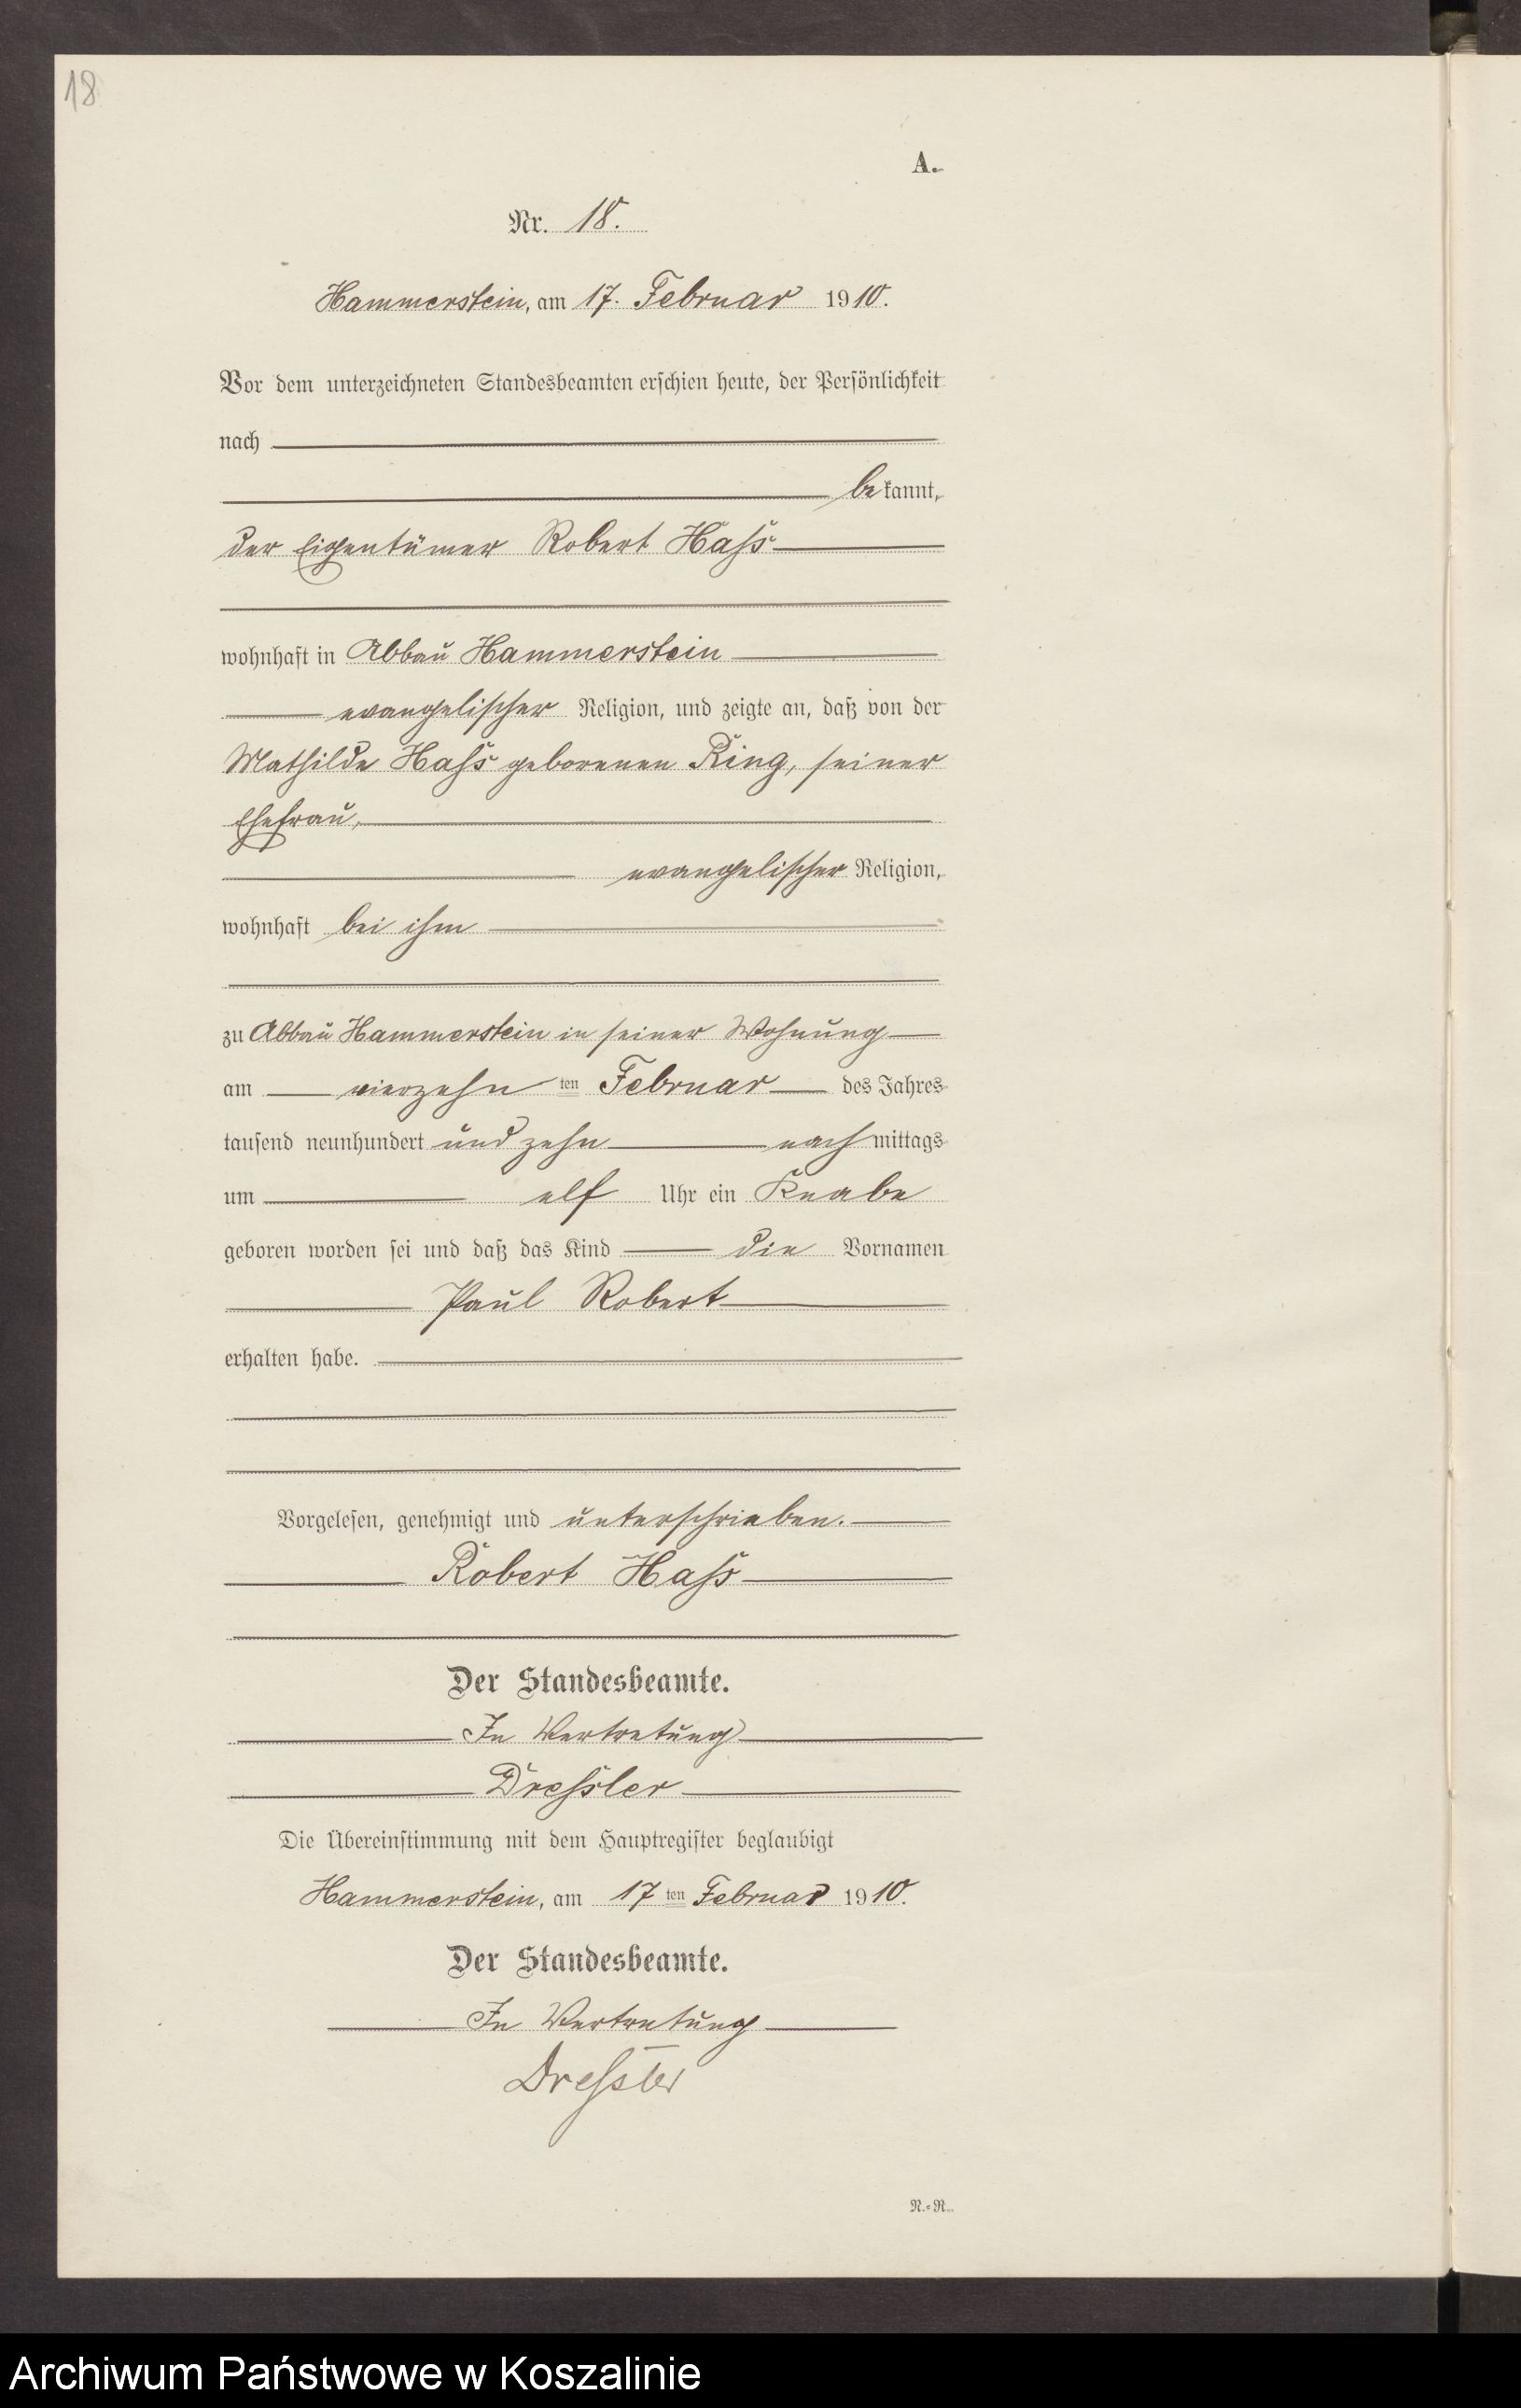 18
A.
Nr. 18.
Hammerstein, am 17. Februar 1910.
Vor dem unterzeichneten Standesbeamten erschien heute, der Persönlichkeit
nach
bekannt,
der Eigentümer Robert Hass
wohnhaft in Abbau Hammerstein
evangelischer Religion, und zeigte an, daß von der
Mathilde Hass geborenen Ring, seiner
Ehefrau,
evangelischer Religion,
wohnhaft bei ihm
zu Abbau Hammerstein in seiner Wohnung
am vierzehn ten Februar des Jahres
tausend neunhundert und zehn nachmittags
um elf Uhr ein Knabe
geboren worden sei und daß das Kind die Vornamen
Paul Robert
erhalten habe.
Vorgelesen, genehmigt und unterschrieben.
Robert Hass
Der Standesbeamte.
In Vertretung
Dressler
Die Übereinstimmung mit dem Hauptregister beglaubigt
Hammerstein, am 17 ten Februar 1910.
Der Standesbeamte.
In Vertretung
Dressler
N.-R.
Archiwum Państwowe w Koszalinie